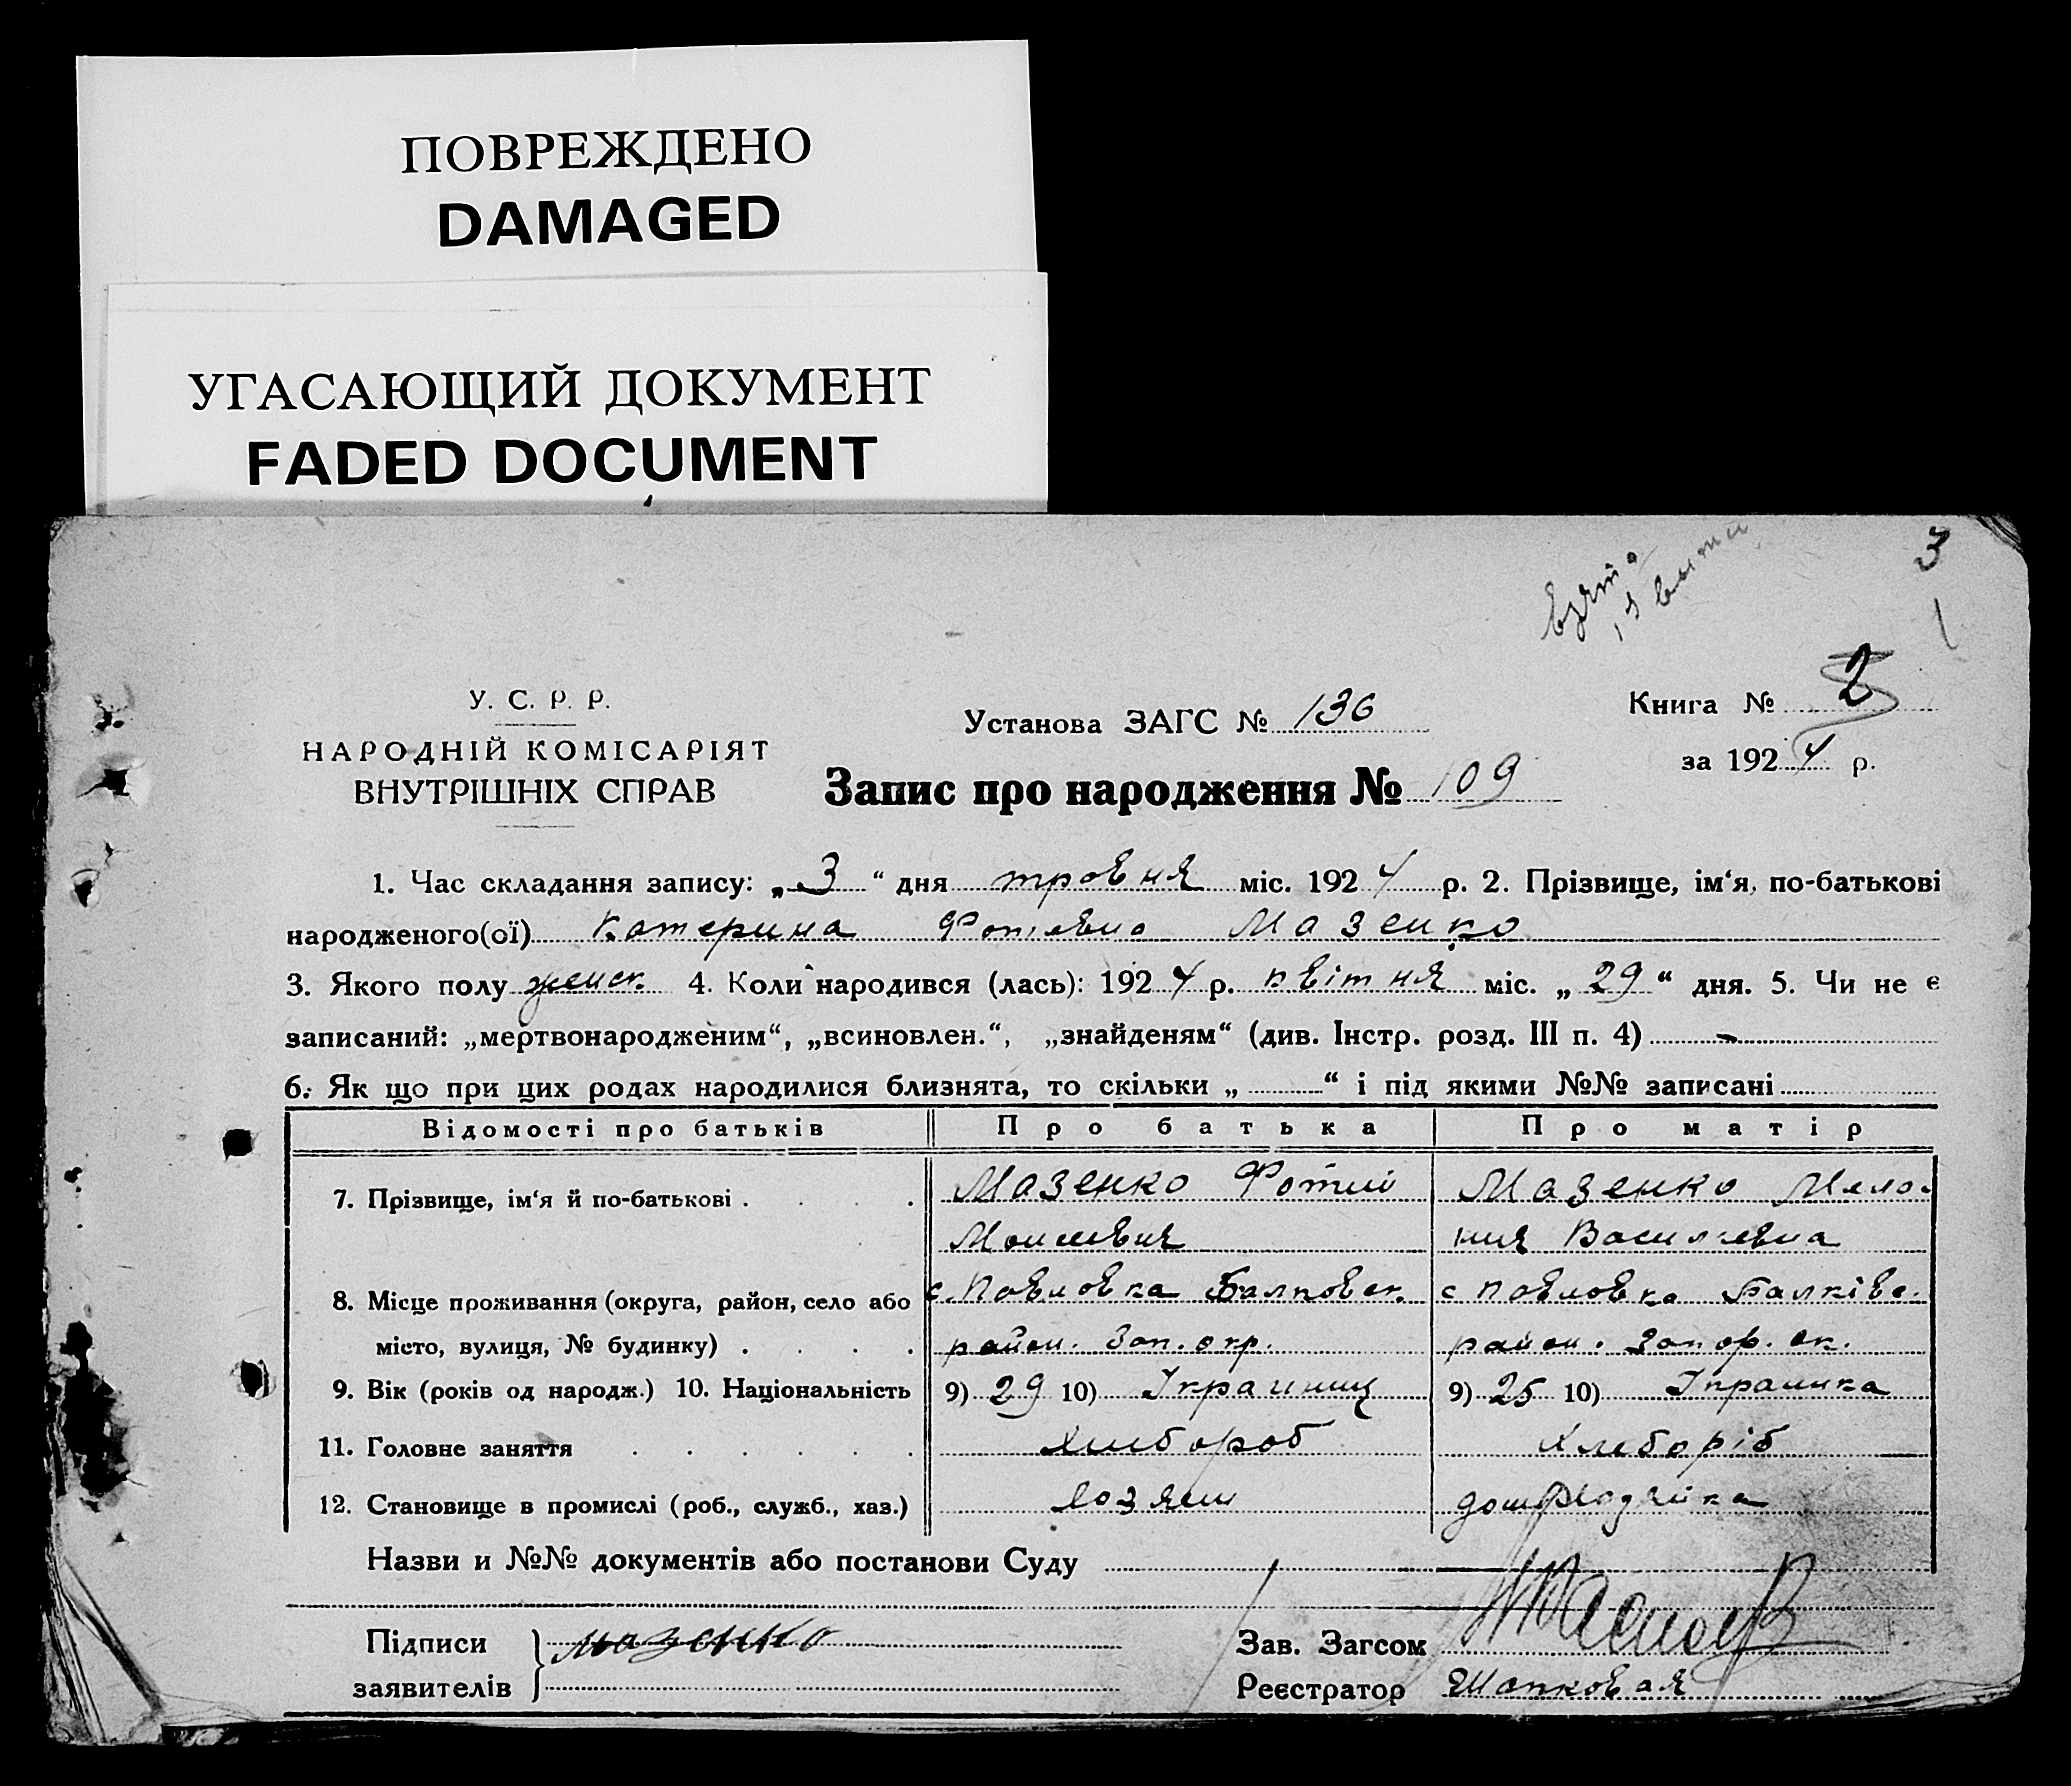 ПОВРЕЖДЕНО
DAMAGED
УГАСАЮЩИЙ ДОКУМЕНТ
FADED DOCUMENT
3
У. С. Р. Р.
НАРОДНІЙ КОМІСАРІЯТ
ВНУТРІШНІХ СПРАВ
Установа ЗАГС № 136
Запис про народження № 109
Книга № 2
за 1924 р.
1. Час складання запису: „3“ дня тровня міс. 1924 р. 2. Прізвище, ім‘я, по-батькові
народженого(ої) Катерина Фотіевна Мазенко
3. Якого полу женск. 4. Коли народився (лась): 1924 р. квітня міс. „29“ дня. 5. Чи не є
записаний: „мертвонародженим“, „всиновлен.“, „знайденям“ (див. Інстр. розд. III п. 4) -
6. Як що при цих родах народилися близнята, то скільки „ “ і під якими №№ записані
Відомості про батьків Про батька Про матір
7. Прізвище, ім‘я й по-батькові . . . . Мазенко Фотий Мазенко Мела-
Моисевич ния Василевна
8. Місце проживання (округа, район, село або с. Павловка Балковск. с Павловка Балківс.
місто, вулиця, № будинку) . . . . район. Зап. окр. район. Запор. ок.
9. Вік (років од народж.) 10. Національність 9) 29 10) Украинец 9) 25 10) Украинка
11. Головне заняття . . . . . . Хлибороб Хлеборіб
12. Становище в промислі (роб., служб., хаз.) Хозяин
Назви и №№ документів або постанови Суду
Підписи Мазенко Зав. Загсом
заявителів Реєстратор Шапковая